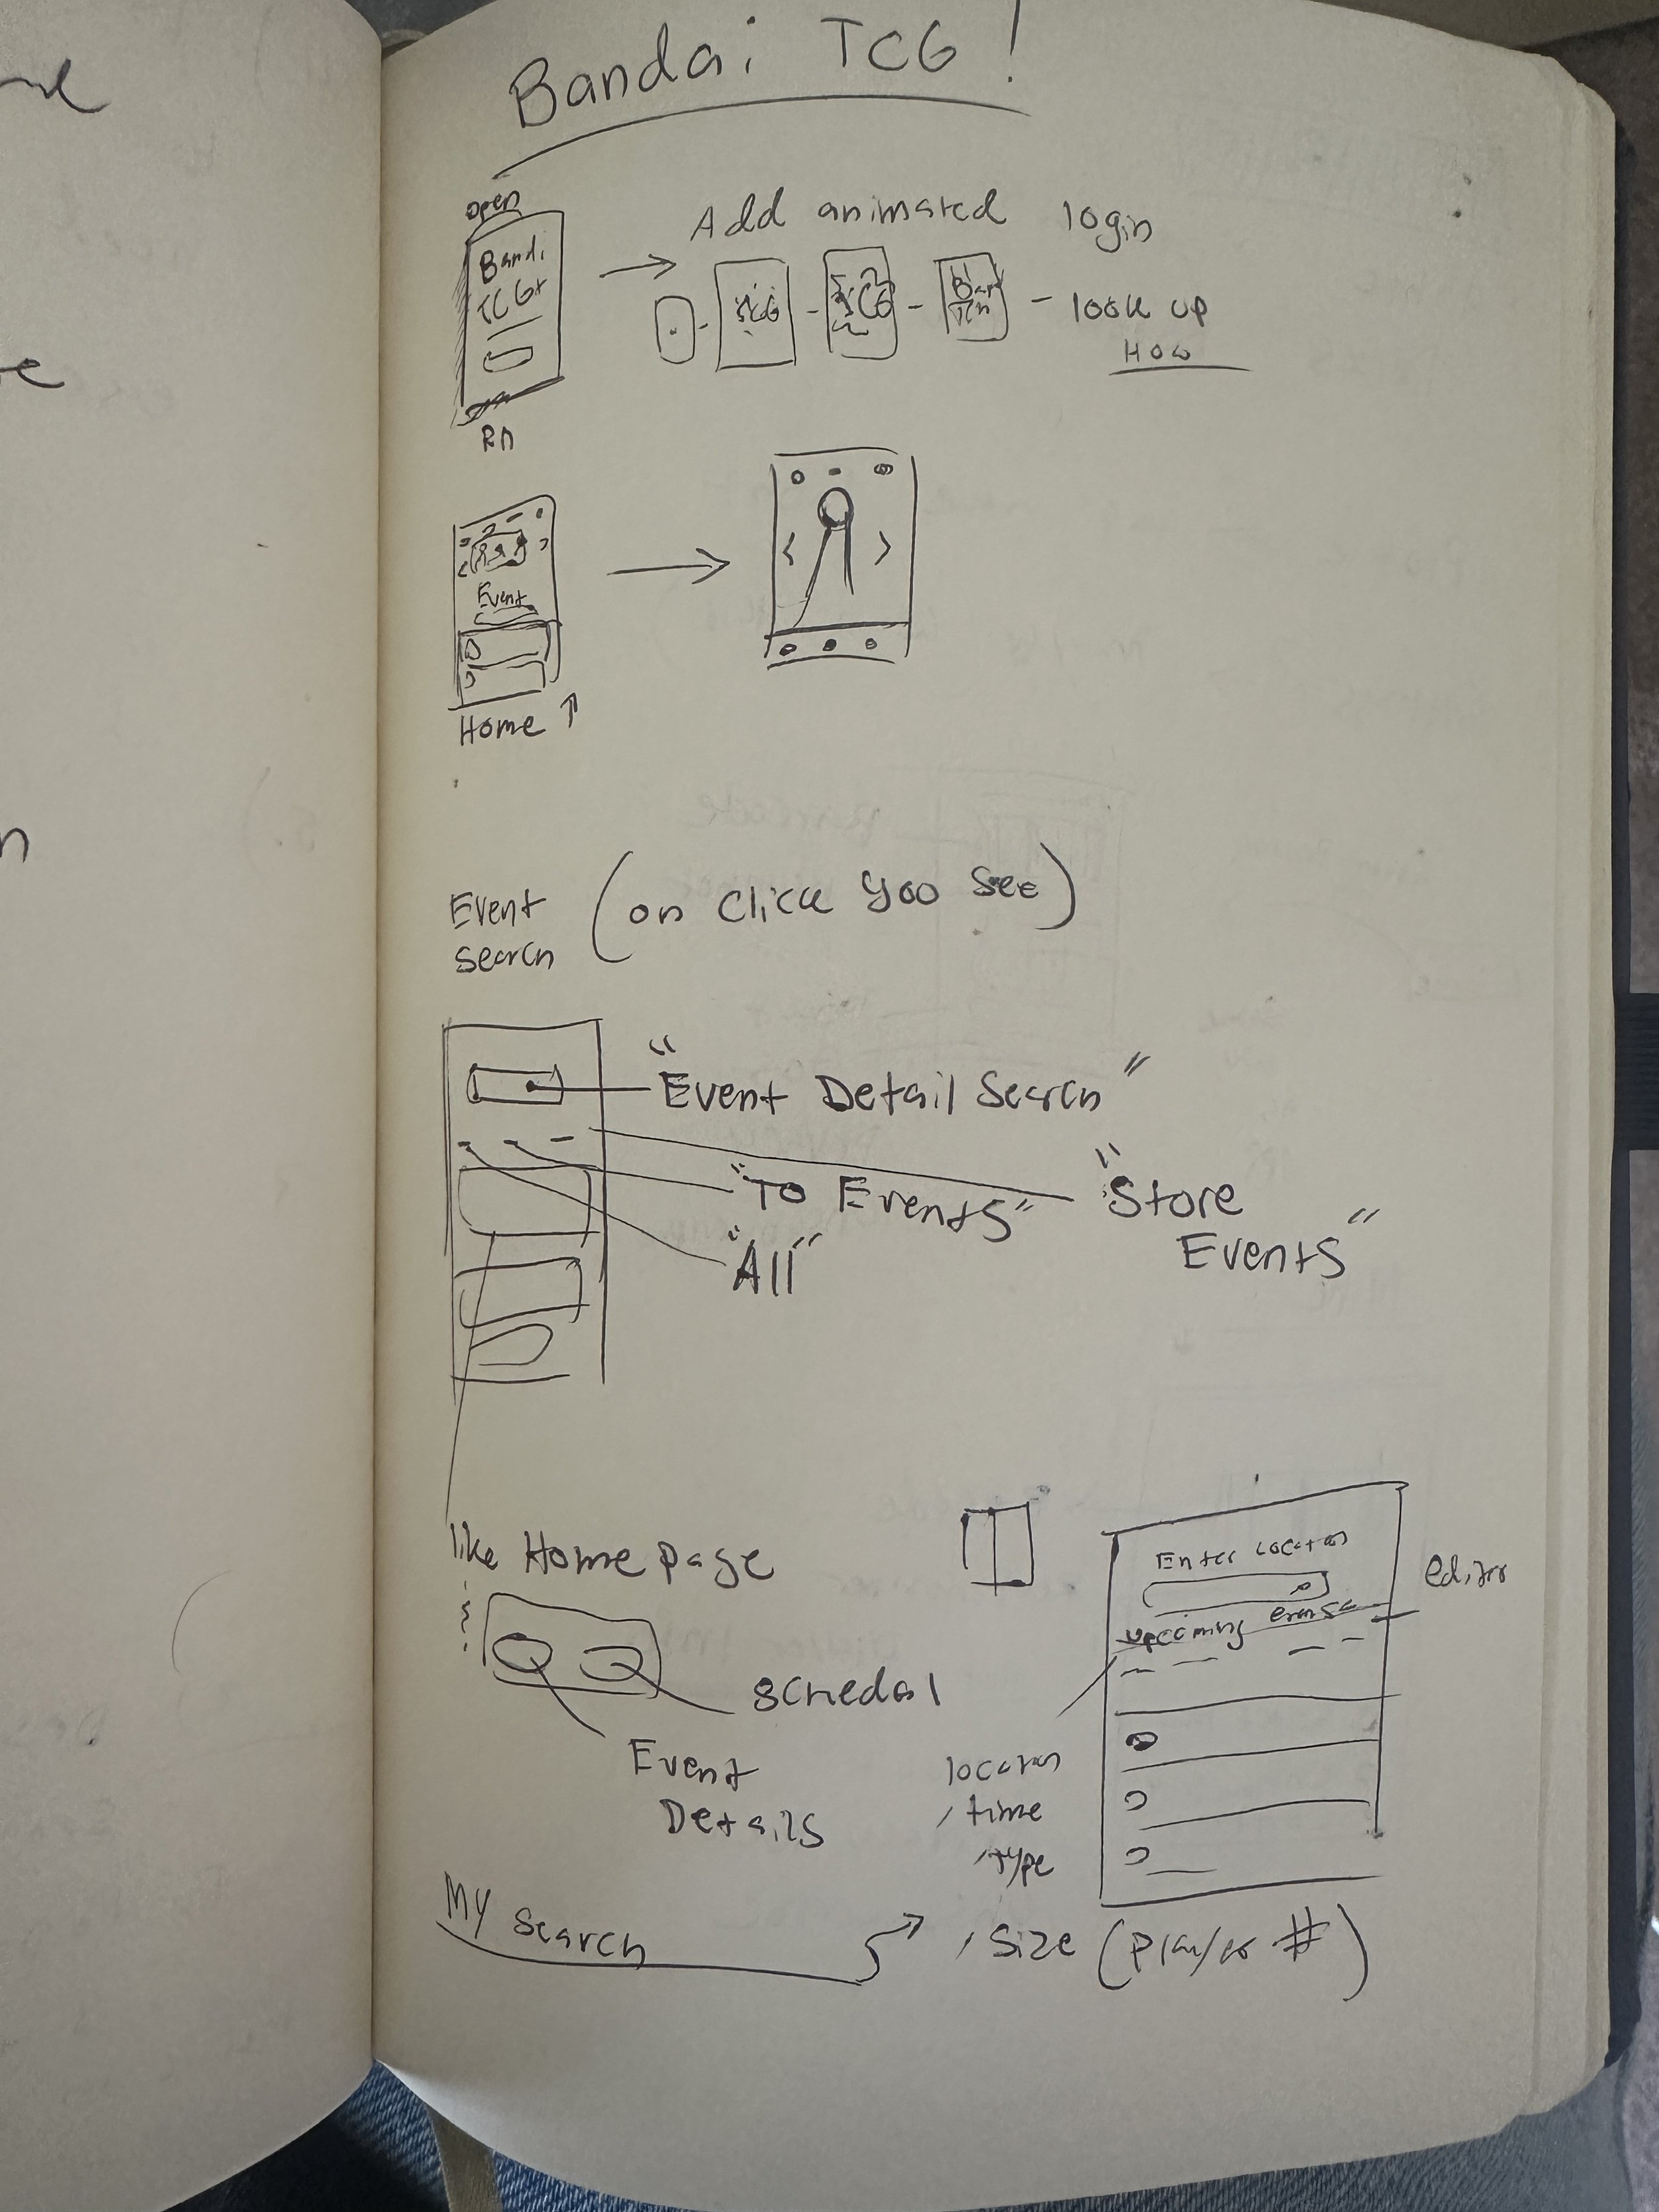 Bandai TCG!
open
Bandi
TCG+
RN
Add animated login
TCG
look up
How
Event
Home ↑
Event
Search
(on click you see)
"Event Detail Search"
"To Events"
"Store
Events"
"All"
like Home page
schedal
Event
Details
Enter Location
upcoming events
location
, time
, type
, size (player #)
My Search